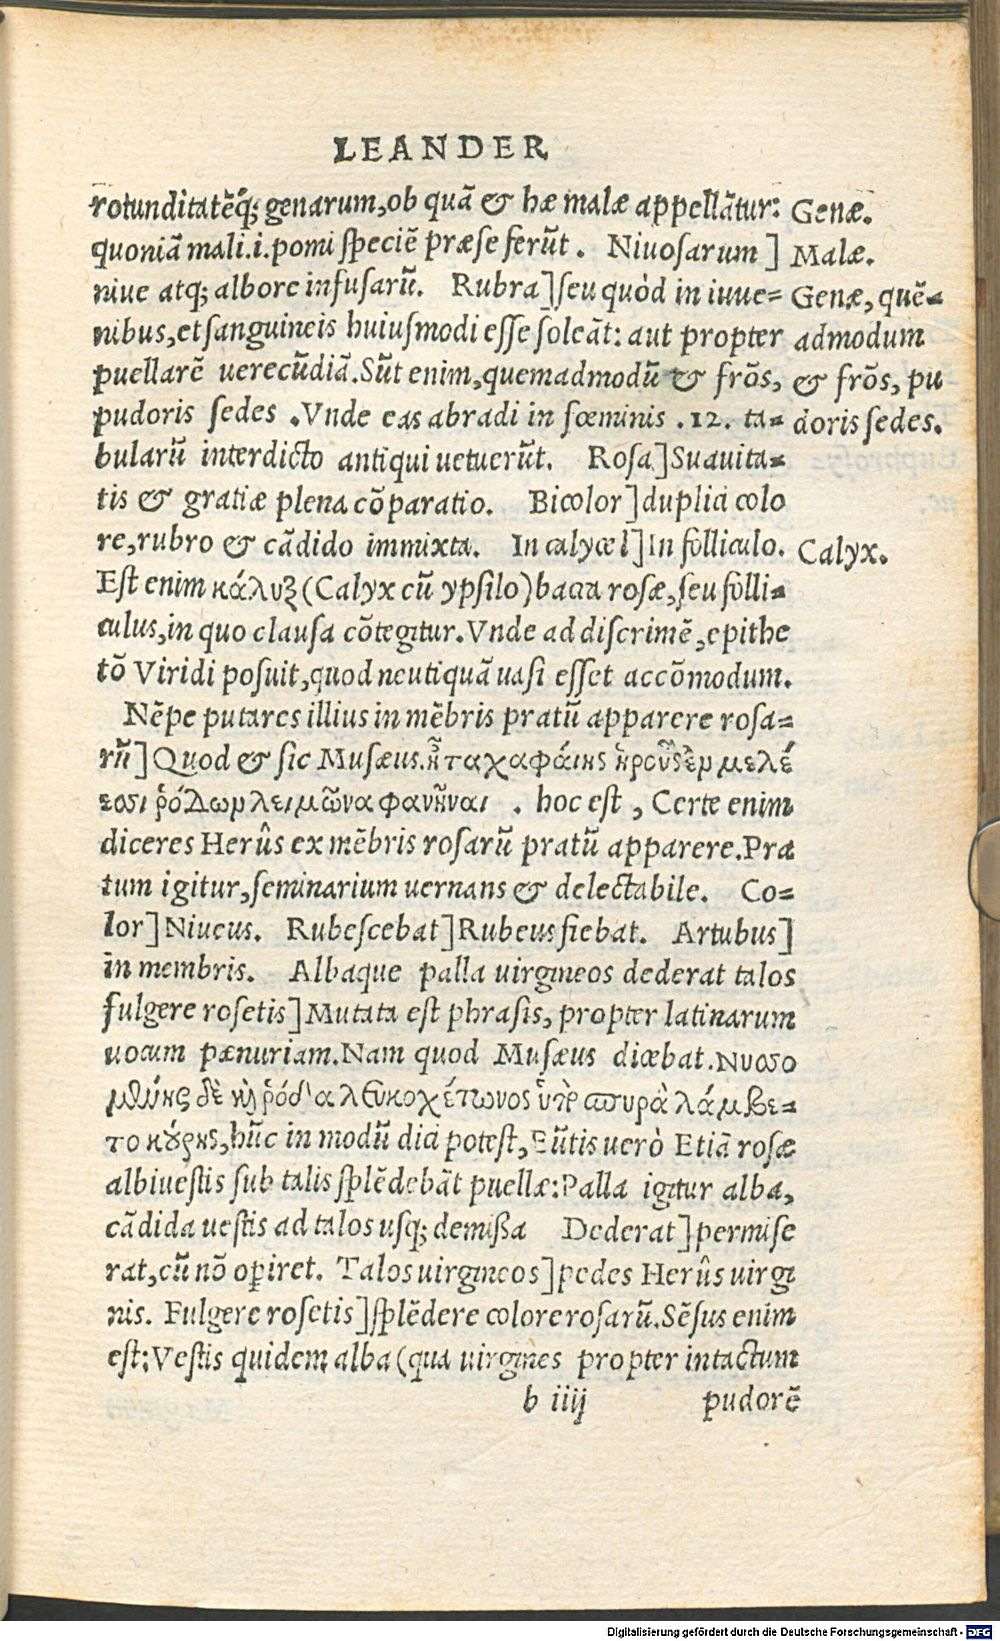 LEANDER
rotunditatēq́; genarum, ob quā & hæ malæ appellātur:
quoniā mali .i. pomi speciē præse ferūt . Nivosarum ]
nive atq; albore infusarū. Rubra ] seu quòd in iuue=
nibus, et sanguineis huiusmodi esse soleāt: aut propter
puellarē uerecūdiā. Sūt enim, quemadmodū & frōs,
pudoris sedes . Vnde eas abradi in fœminis .12. ta=
bularū interdicto antiqui uetuerūt. Rosa ] Suauita=
tis & gratiæ plena cōparatio. Bicolor ] duplici colo
re, rubro & cādido immixta. In calyce l ] In folliculo.
Est enim κάλυξ (Calyx cū ypsilo) baca rosæ, seu folli=
culus, in quo clausa cōtegitur. Vnde ad discrimē, epithe
tō Viridi posuit, quod neutiquā uasi esset accōmodum.
Nēpe putares illius in mēbris pratū apparere rosa=
rū ] Quod & sic Musæus. ἦ ταχα φάιης ἡροῦς ἐμ μελέ
εσσι ῥόδωμ λειμῶνα φανῆναι . hoc est , Certe enim
diceres Herûs ex mēbris rosarū pratū apparere. Pra
tum igitur, seminarium uernans & delectabile. Co=
lor ] Niueus. Rubescebat ] Rubeus fiebat. Artubus ]
in membris. Albaque palla uirgineos dederat talos
fulgere rosetis ] Mutata est phrasis, propter latinarum
uocum pænuriam. Nam quod Musæus dicebat. Νισσο
μθύης δὲ κỳ ῥόδα λευκοχίτωνος ὑπὸ σφυρὰ λάμβε=
το κούρης, hūc in modū dici potest, Eūtis uerò Etiā rosæ
albiuestis sub talis splēdebāt puellæ: Palla igitur alba,
cādida uestis ad talos usq; demißa Dederat ] permise
rat, cū nō operiret. Talos uirgineos ] pedes Herûs uirgi
nis. Fulgere rosetis ] splēdere colore rosarū. Sēsus enim
est: Vestis quidem alba (qua uirgines propter intactum
b iiij pudorē
Genæ.
Malæ.
Genæ, quē=
admodum
& frōs, pu
doris sedes.
Calyx.
Digitalisierung gefördert durch die Deutsche Forschungsgemeinschaft - DFG